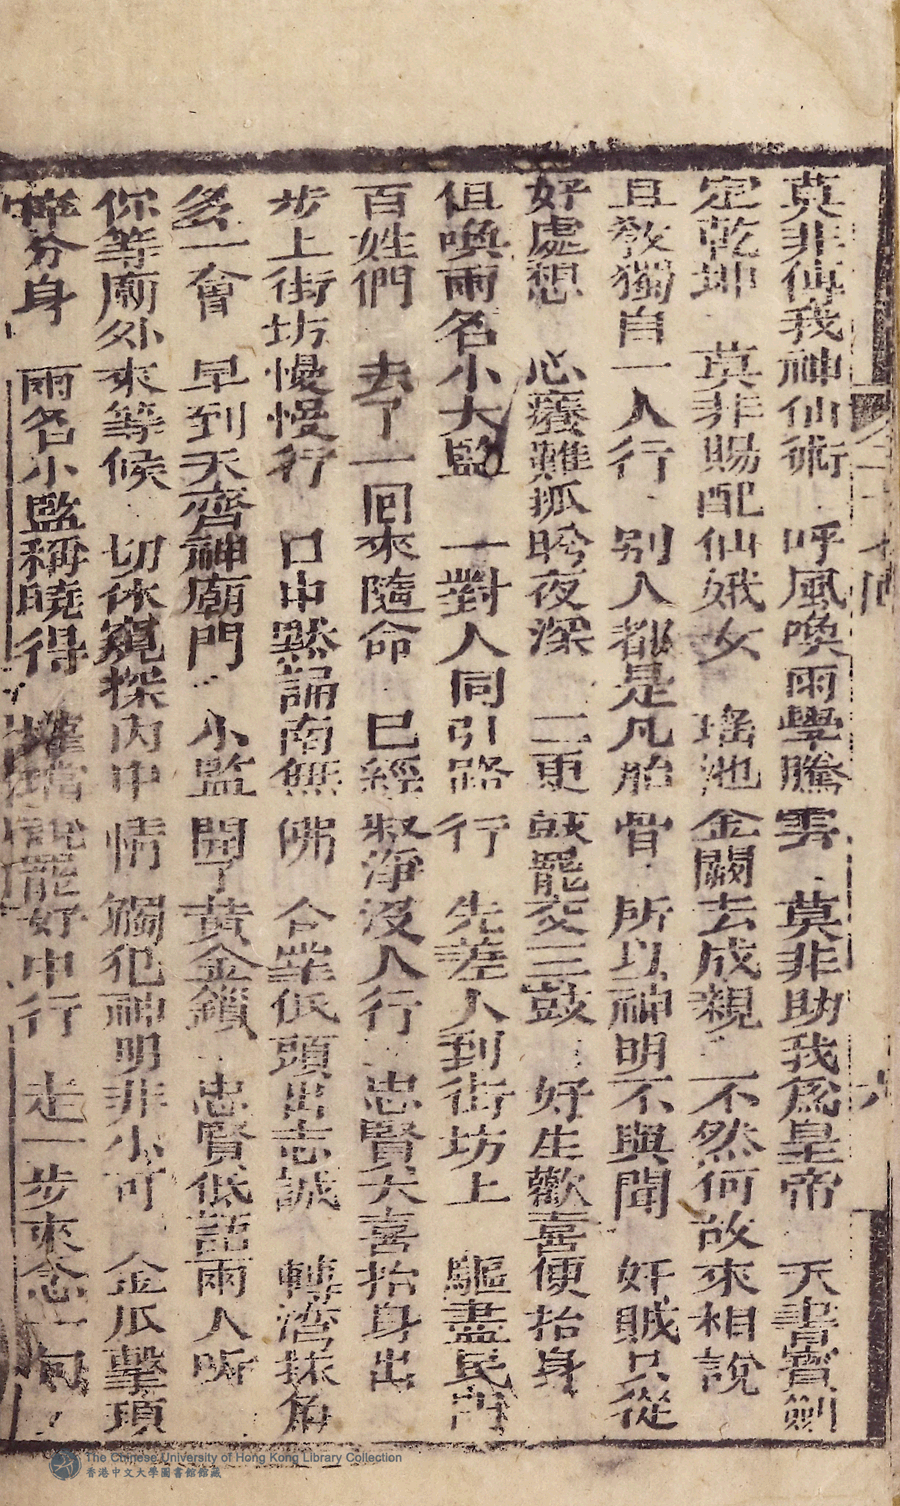 莫非傳我神仙術 呼風喚雨學騰雲 莫非助我為皇帝 天書寶劍
定乾坤 莫非賜配仙娥女 瑤池金闕去成親 不然何故來相說
且敎獨自一人行 別人都是凡胎骨 所以神明不與聞 奸賊只從
好處想 心癢難抓昤夜深 二更鼓罷交三鼓 好生歡喜便抬身
但喚兩名小太監 一對人同引路行 先差人到街坊上 驅盡民門
百姓們 去了一回來隨命 已經叔淨沒人行 忠賢大喜抬身出
步上街坊慢慢行 口中黙誦南無佛 合掌低頭出志誠 轉湾抹角
多一會 早到天齊神廟門 小監開了黃金鎖 忠賢低語兩人听
你等廟外來等候 切休窺探內中情 觸犯神明非小可 金瓜擊頂
碎分身 兩名小監稱曉得 說罷好中行 走一步來念一句
六
The Chinese University of Hong Kong Library Collection
香港中文大學圖書館館藏